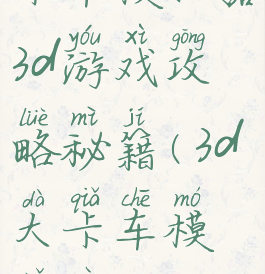 yóu xì gōng
3d游戏攻
lüè mì jí
略秘籍(3d
dà qiǎ chē mó
大卡车模